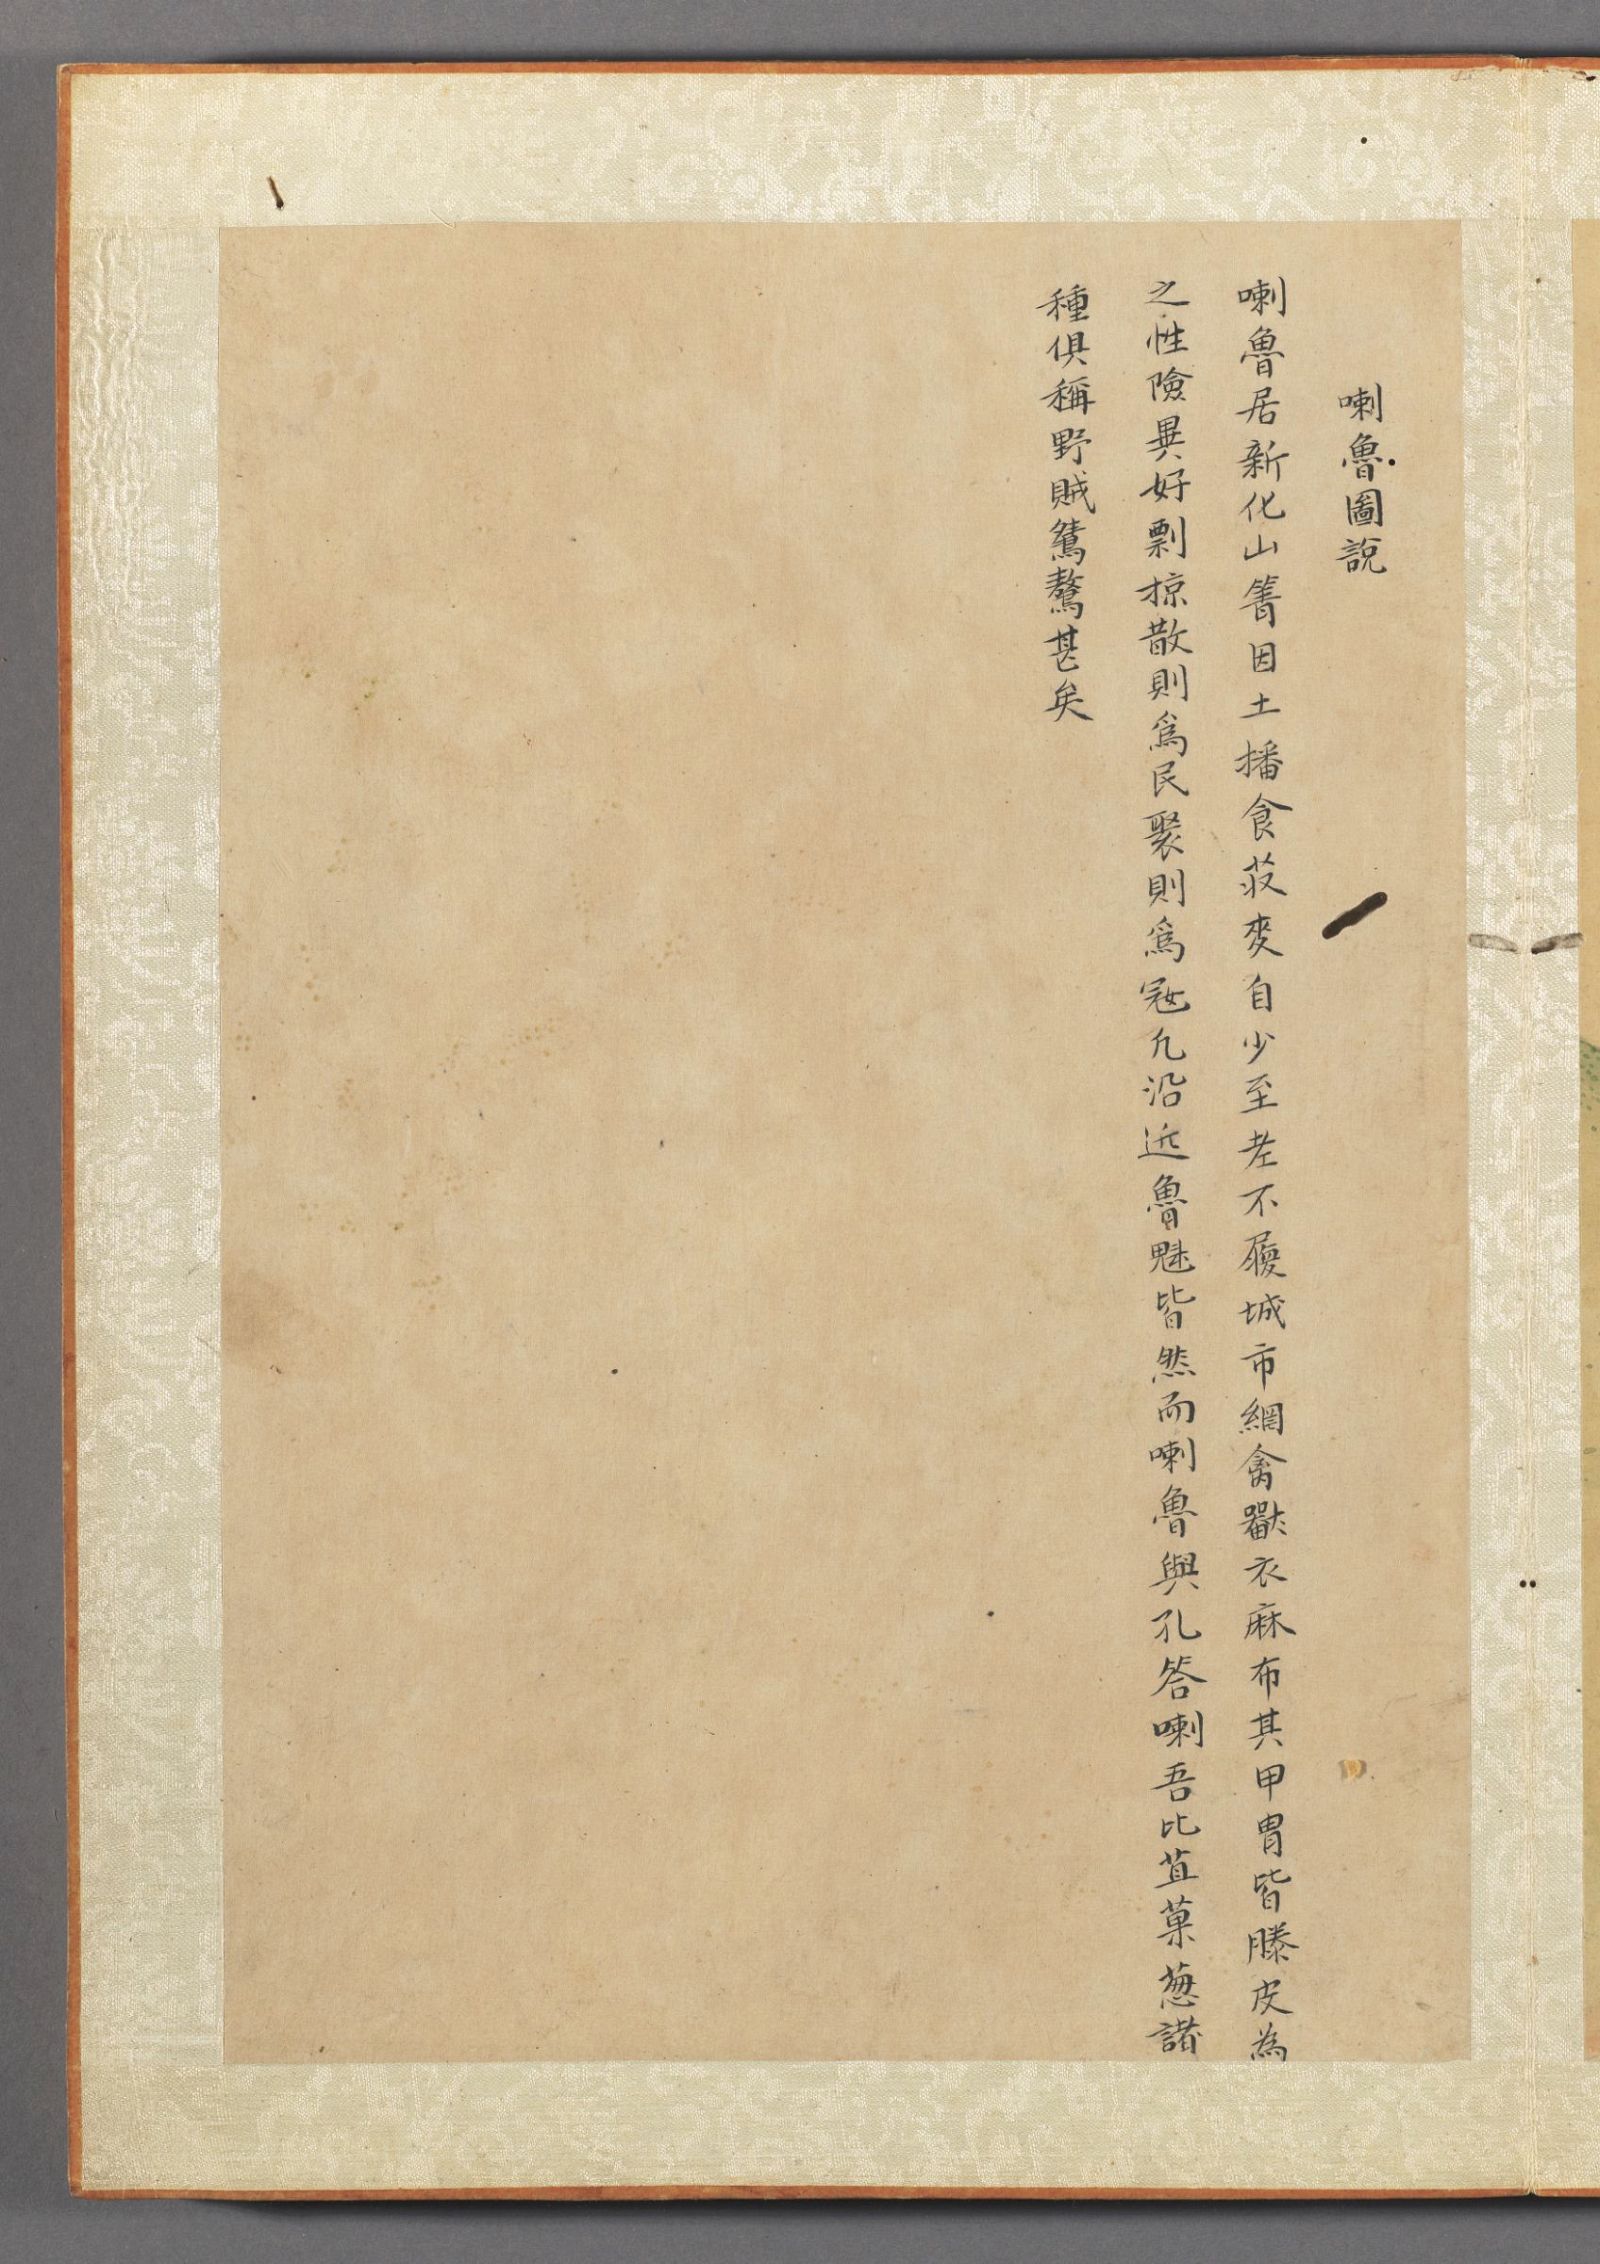 喇魯圖說
喇魯居新化山箐因土播食菽麥自少至老不履城市網禽獸衣麻布其甲冑皆滕皮為
之性險異好剽掠散則爲民聚則爲寇凢沿近魯魁皆然而喇魯與孔答喇吾比苴菓葱諸
種俱稱野賊鷙驁甚矣